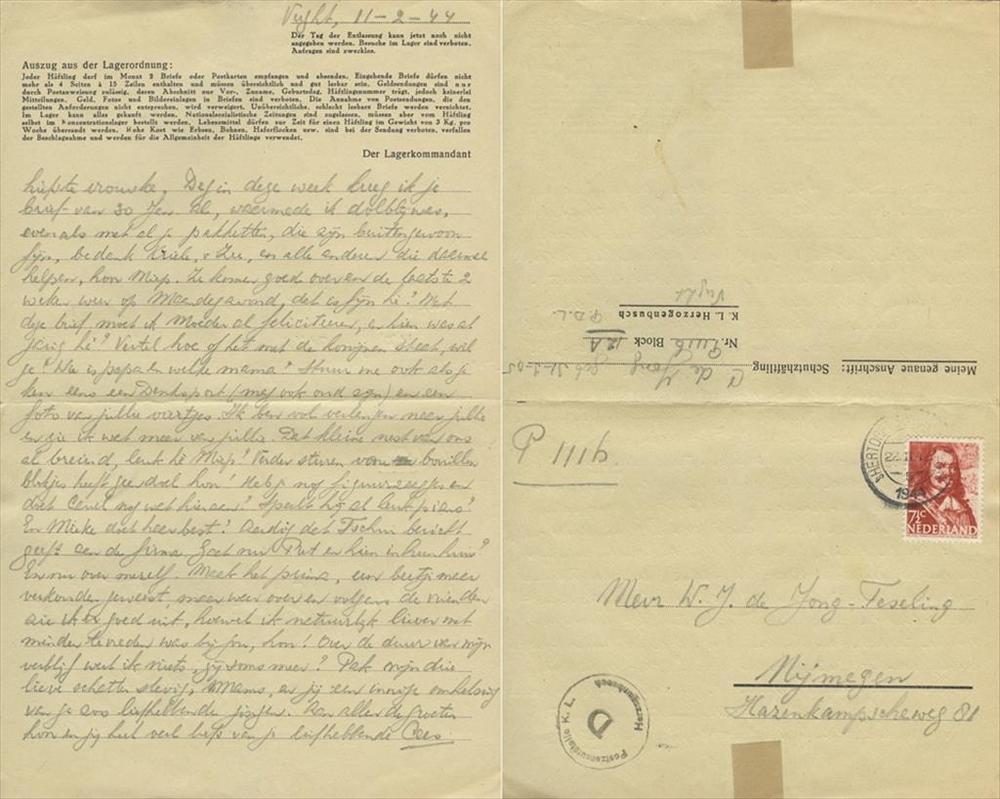 Vught, 11-2-44
Der Tag der Entlassung kann jetzt noch nicht
angegeben werden. Besuche im Lager sind verboten.
Anfragen sind zwecklos.
Auszug aus der Lagerordnung:
Jeder Häftling darf im Monat 2 Briefe oder Postkarten empfangen und absenden. Eingehende Briefe dürfen nicht
mehr als 4 Seiten à 15 Zeilen enthalten und müssen übersichtlich und gut lesbar sein. Geldsendungen sind nur
durch Postanweisung zulässig, deren Abschnitt nur Vor-, Zuname, Geburtstag, Häftlingsnummer trägt, jedoch keinerlei
Mitteilungen. Geld, Fotos und Bildereinlagen in Briefen sind verboten. Die Annahme von Postsendungen, die den
gestellten Anforderungen nicht entsprechen, wird verweigert. Unübersichtliche, schlecht lesbare Briefe werden vernichtet.
Im Lager kann alles gekauft werden. Nationalsozialistische Zeitungen sind zugelassen, müssen aber vom Häftling
selbst im Konzentrationslager bestellt werden. Lebensmittel dürfen zur Zeit für einen Häftling im Gewicht von 3 Kg. pro
Woche übersandt werden. Rohe Kost wie Erbsen, Bohnen, Haferflocken usw. sind bei der Sendung verboten, verfallen
der Beschlagnahme und werden für die Allgemeinheit der Häftlinge verwendet.
Der Lagerkommandant
liefste vrouwke, Deze week kreeg ik je
brief van 30 Jan. al, waarmede ik dolblij was,
evenals met al je pakketten, die zijn buitengewoon
fijn, bedank en alle anderen die daarmee
helpen, hoor Miep. Ze komen goed over en de laatste 2
weken weer op Maandagavond, dat is fijn hè? Met
deze brief moet ik Moeder al feliciteren, en hien was al
jarig hè? Vertel hoe of het met de konijnen staat, wil
je? Wie is papa en welke mama? Stuur me ook als je
kan eens een Denksport (mag ook oud zijn) en een
foto van jullie Ik ben vol verlangen naar jullie
en zie ik wat meer van jullie. Dat kleine nest van ons
al breiend, leuk hè Miep? Verder sturen van bouillon
blokjes heeft geen doel hoor! Heb je nog figuurzaagjes en
doet Carel nog wat hieraan? Speelt hij al leuk piano?
En Mieke doet heer best? Aardig dat bericht
geeft aan de firma. Gaat nu Piet en hien in huis?
En nu over mezelf. Maak het prima, een beetje meer
verkouden geweest, maar weer over en volgens de vrienden
zie ik er goed uit, hoewel ik natuurlijk liever met
minder tevreden was bij jou, hoor! Over de duur van mijn
verblijf weet ik niets, jij soms meer? Pak mijn drie
lieve schatten stevig, Mams, en jij een innige omhelzing
van je zoo liefhebbende jongen. Aan allen de groeten
hoor en jij heel veel liefs van je liefhebbende Cees.
Meine genaue Anschrift: Schutzhäftling
C de Jong geb 31-3-05
Nr. Block 12A
K. L. Herzogenbusch
Vught
P 1119
SHERTO
194
7½c
NEDERLAND
Mevr W. J. de Jong-Teseling
Nijmegen
Hazenkampscheweg 81
Postzensurstelle K. L.
Herzogenbusch
D